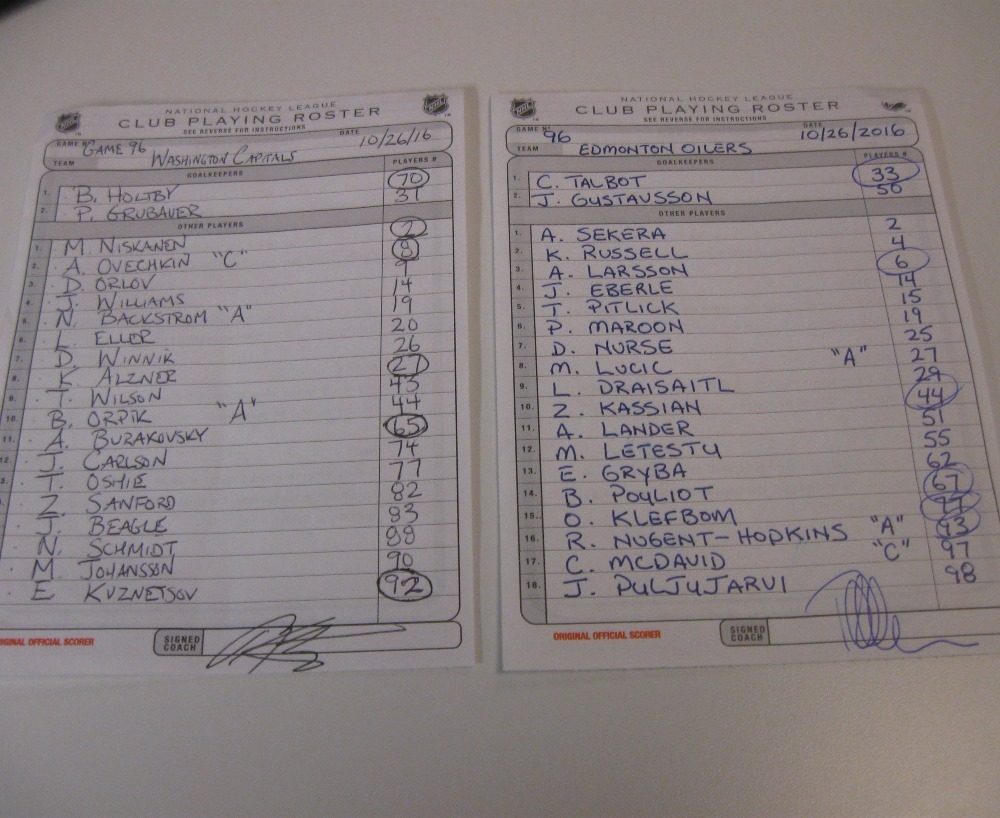 NATIONAL HOCKEY LEAGUE
CLUB PLAYING ROSTER
SEE REVERSE FOR INSTRUCTIONS
GAME Nº GAME 96 DATE 10/26/16
TEAM WASHINGTON CAPITALS
GOALKEEPERS PLAYERS #
1. B. HOLTBY 70
2. P. GRUBAUER 31
OTHER PLAYERS
1. M. NISKANEN 2
2. A. OVECHKIN "C" 8
3. D. ORLOV 9
4. J. WILLIAMS 14
5. N. BACKSTROM "A" 19
6. L. ELLER 20
7. D. WINNIK 26
8. K. ALZNER 27
9. T. WILSON 43
10. B. ORPIK "A" 44
11. A. BURAKOVSKY 65
12. J. CARLSON 74
3. T. OSHIE 77
Z. SANFORD 82
J. BEAGLE 83
N. SCHMIDT 88
M. JOHANSSON 90
E KUZNETSOV 92
RIGINAL OFFICIAL SCORER
SIGNED COACH
NHL
NATIONAL HOCKEY LEAGUE
CLUB PLAYING ROSTER
SEE REVERSE FOR INSTRUCTIONS
GAME Nº 96 DATE 10/26/2016
TEAM EDMONTON OILERS
GOALKEEPERS PLAYERS #
1. C. TALBOT 33
2. J. GUSTAVSSON 50
OTHER PLAYERS
1. A. SEKERA 2
2. K. RUSSELL 4
3. A. LARSSON 6
4. J. EBERLE 14
5. T. PITLICK 15
6. P. MAROON 19
7. D. NURSE 25
8. M. LUCIC "A" 27
9. L. DRAISAITL 29
10. Z. KASSIAN 44
11. A. LANDER 51
12. M. LETESTU 55
13. E. GRYBA 62
14. B. POULIOT 67
15. O. KLEFBOM 77
16. R. NUGENT-HOPKINS "A" 93
17. C. MCDAVID "C" 97
18. J. PULJUJARVI 98
ORIGINAL OFFICIAL SCORER
SIGNED COACH